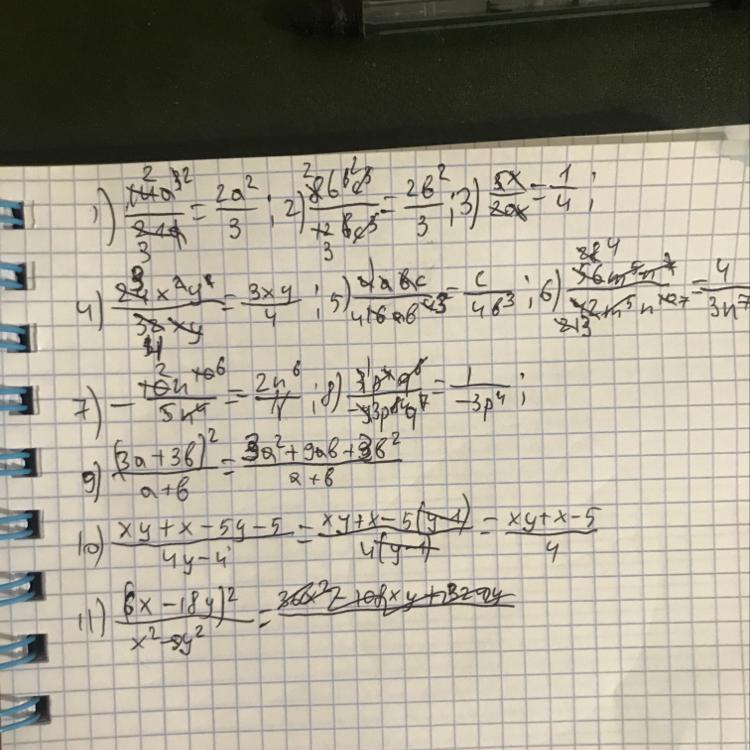 1) 14a³ / 21a = 2a² / 3 ; 2) 8b²c³ / 12bc³ = 2b² / 3 ; 3) 5x / 20x = 1 / 4 ;
4) 24x²y² / 32xy = 3xy / 4 ; 5) 4abc / 16ab⁴ = c / 4b³ ; 6) 56m⁵n / 42m⁵n = 4 / 3n⁷
7) - 10n¹⁰ / 5n⁴ = 2n⁶ / 1 ; 8) = 1 / -3p⁴ ;
9) (3a+3b)² / a+b = 3a²+9ab+3b² / a+b
10) xy+x-5y-5 / 4y-4 = xy+x-5(y-1) / 4(y-1) = xy+x-5 / 4
11) (6x-18y)² / x²-9y² =